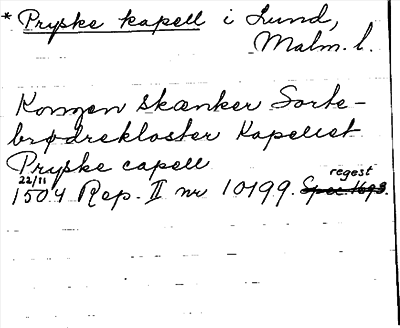 * Pryske kapell i Lund,
Malm. l.
Kongen skænker Sorte-
brødrekloster Kapellet
Pryske capell
22/11 regest
1504 Rep. II nr 10199. Spec. 1693.